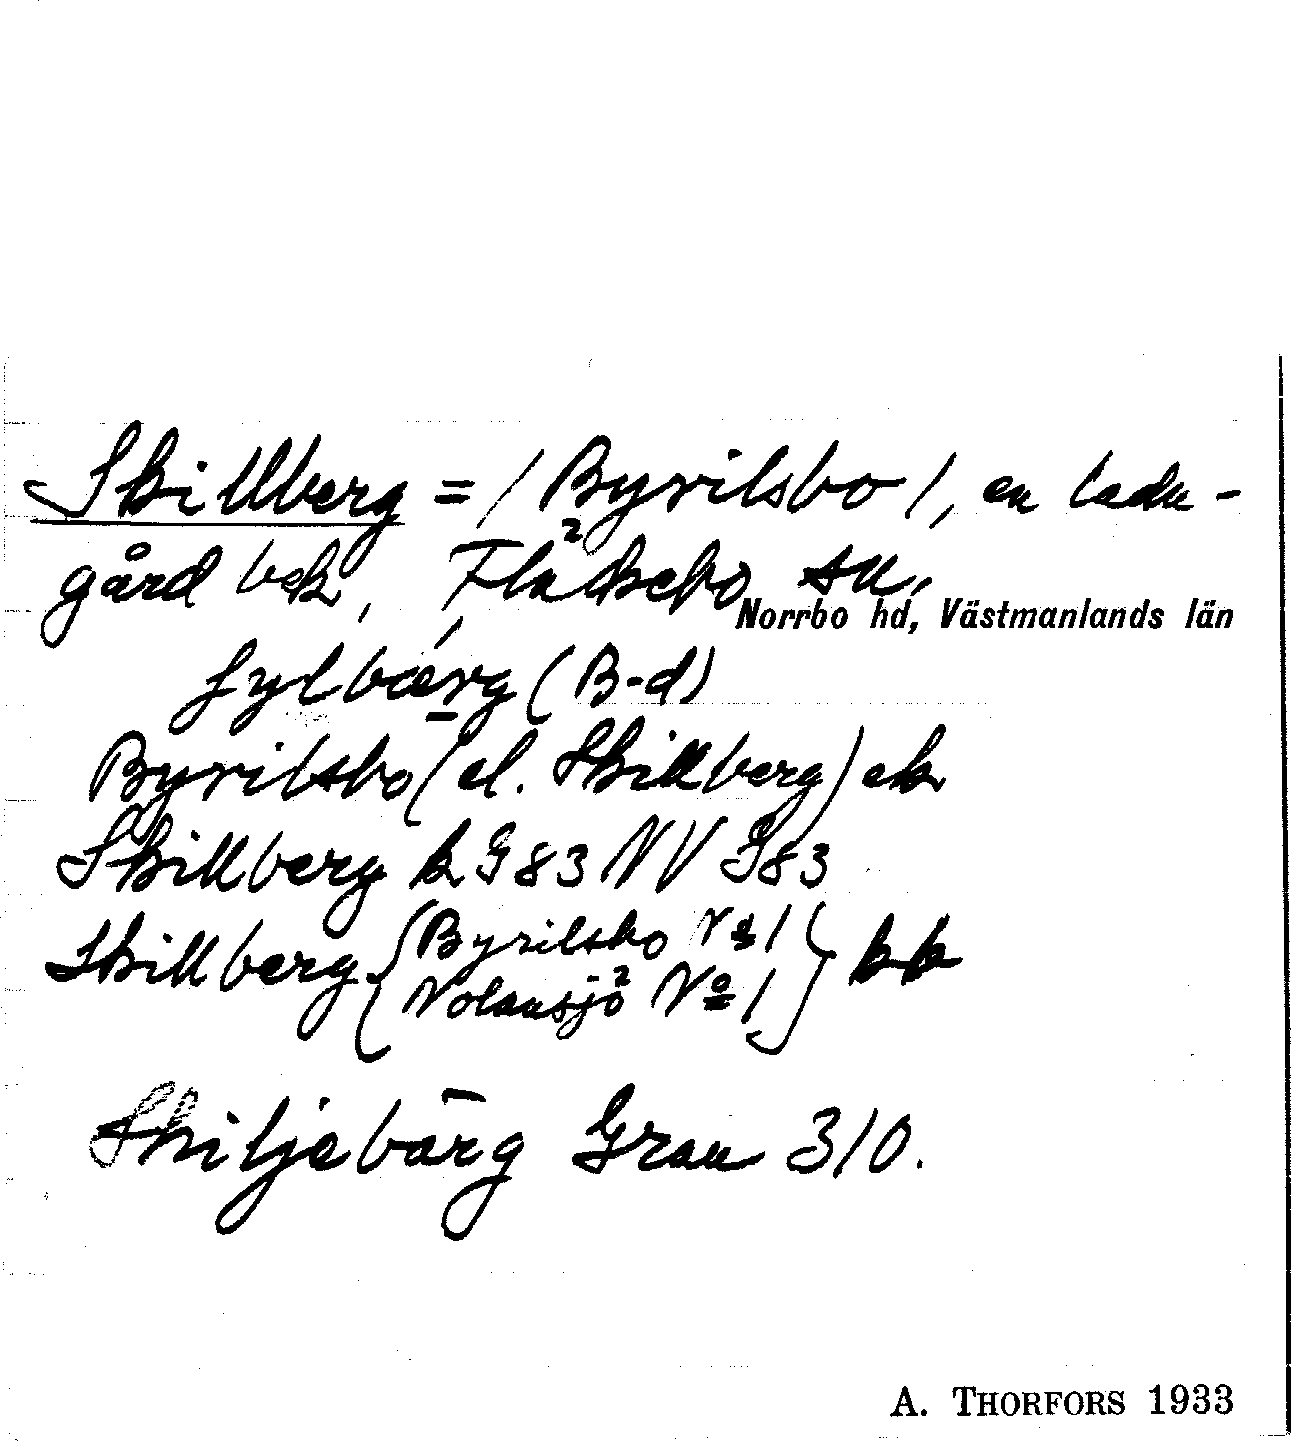 Skillberg = / Byrilsbo /, en ladu-
gård bek, Fläckebo sn,
Norrbo hd, Västmanlands län
ʃylbærg (B-d)
Byrilsbo (el. Skillberg) ek
Skillberg k G83 NV G83
Skillberg { Byrilsbo No 1
Nolansjö No 1 } kk
Skiljebärg Grau 310.
A. THORFORS 1933